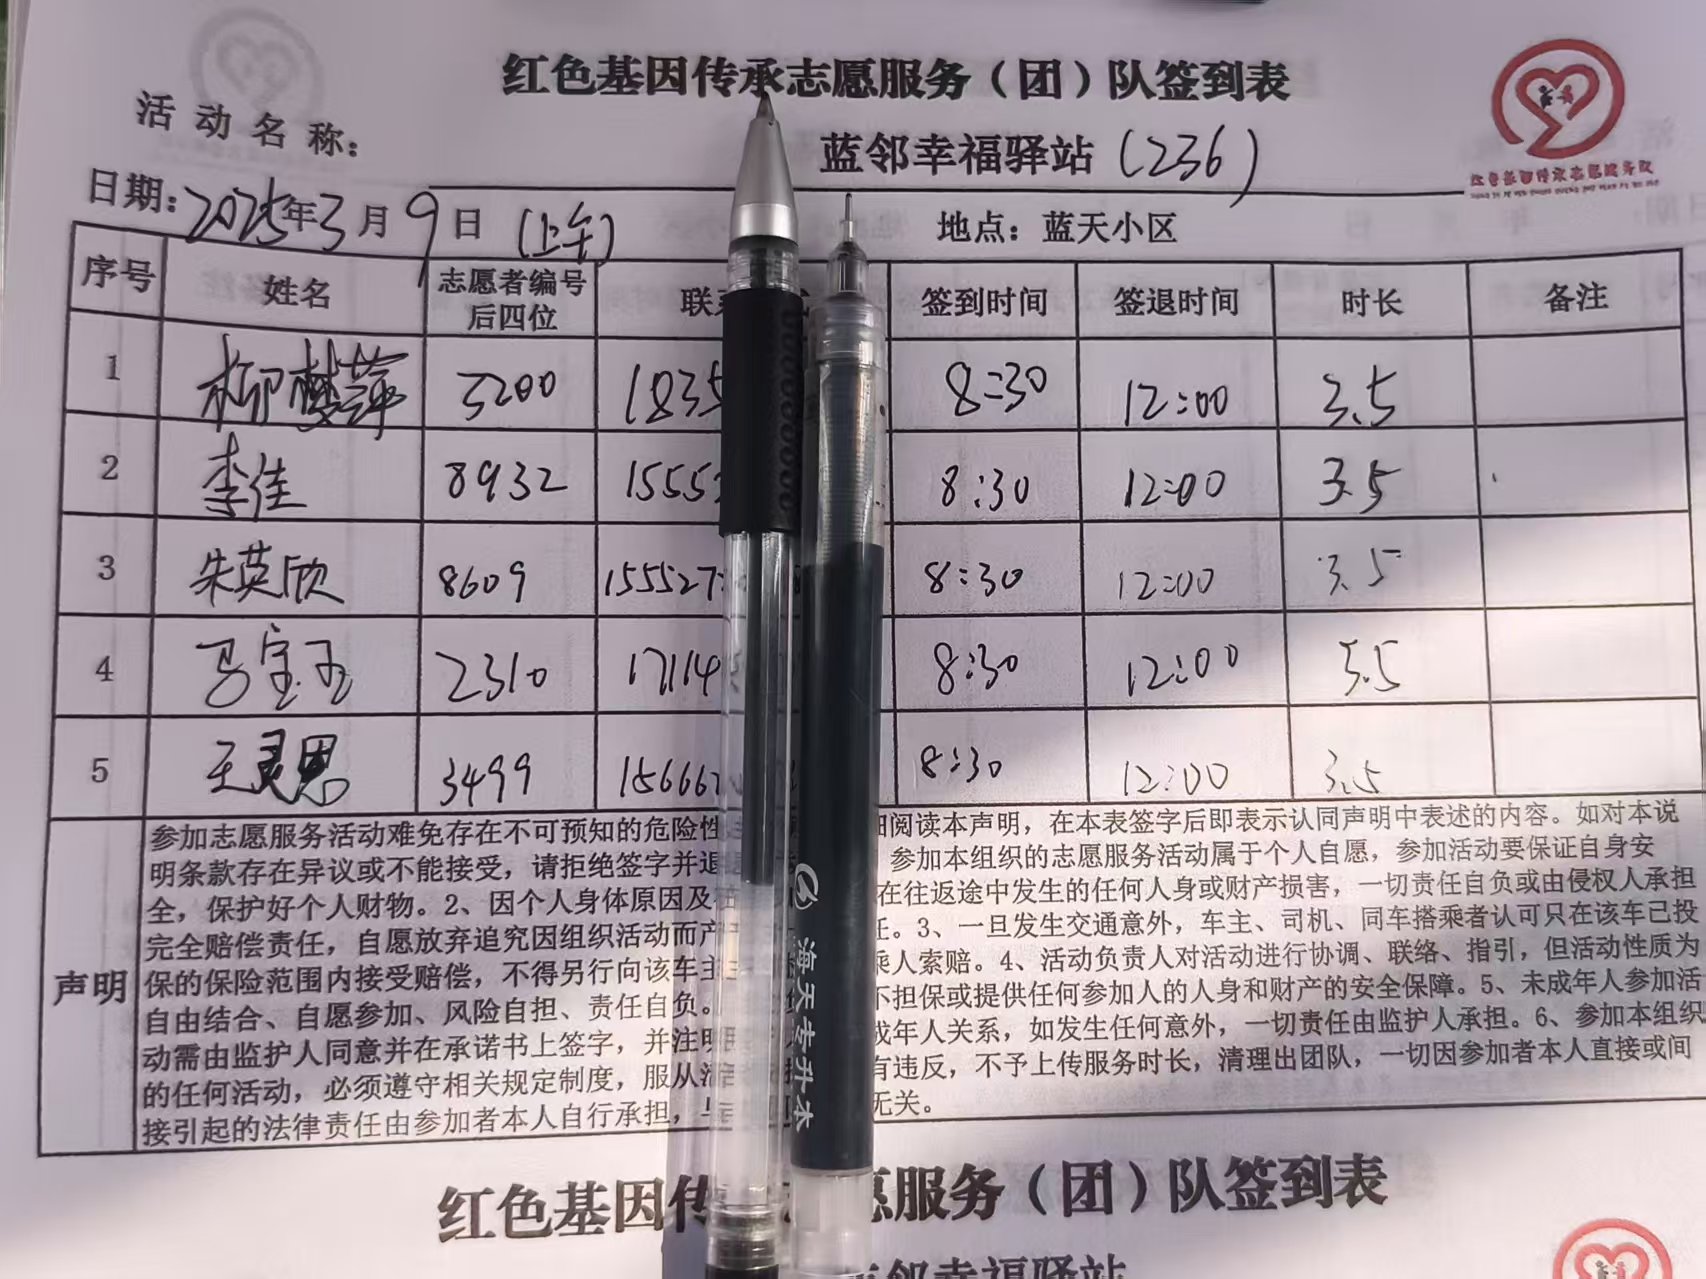 红色基因传承志愿服务（团）队签到表
活动名称：
蓝邻幸福驿站（236）
日期：2025年3月9日（上午）
地点：蓝天小区
序号 姓名 志愿者编号后四位 联系 签到时间 签退时间 时长 备注
1 柳梦萍 5200 1835 8:30 12:00 3.5
2 李佳 8932 1555 8:30 12:00 3.5
3 朱英欣 8609 155527 8:30 12:00 3.5
4 马宝玉 2310 17114 8:30 12:00 3.5
5 王灵思 3499 15666 8:30 12:00 3.5
声明
参加志愿服务活动难免存在不可预知的危险性 阅读本声明，在本表签字后即表示认同声明中表述的内容。如对本说
明条款存在异议或不能接受，请拒绝签字并退 参加本组织的志愿服务活动属于个人自愿，参加活动要保证自身安
全，保护好个人财物。2、因个人身体原因及 在往返途中发生的任何人身或财产损害，一切责任自负或由侵权人承担
完全赔偿责任，自愿放弃追究因组织活动而产 任。3、一旦发生交通意外，车主、司机、同车搭乘者认可只在该车已投
保的保险范围内接受赔偿，不得另行向该车主 乘人索赔。4、活动负责人对活动进行协调、联络、指引，但活动性质为
自由结合、自愿参加、风险自担、责任自负。 不担保或提供任何参加人的人身和财产的安全保障。5、未成年人参加活
动需由监护人同意并在承诺书上签字，并注明 成年人关系，如发生任何意外，一切责任由监护人承担。6、参加本组织
的任何活动，必须遵守相关规定制度，服从 有违反，不予上传服务时长，清理出团队，一切因参加者本人直接或间
接引起的法律责任由参加者本人自行承担，与 无关。
海天专升本
红色基因传 愿服务（团）队签到表
邻幸福驿站